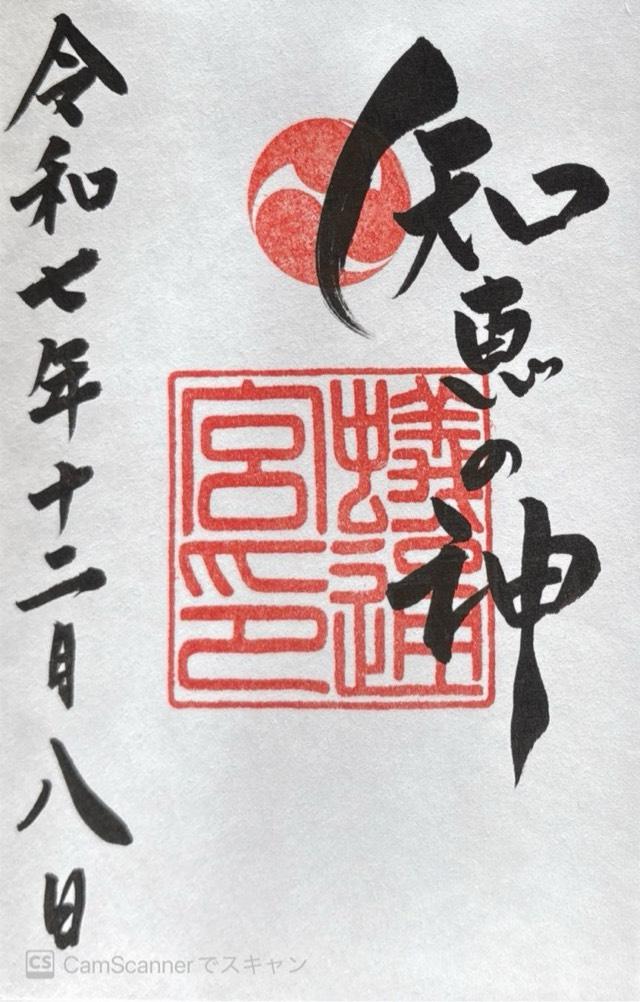 知恵の神
蟻通
宮印
令和七年十二月八日
CS CamScannerでスキャン